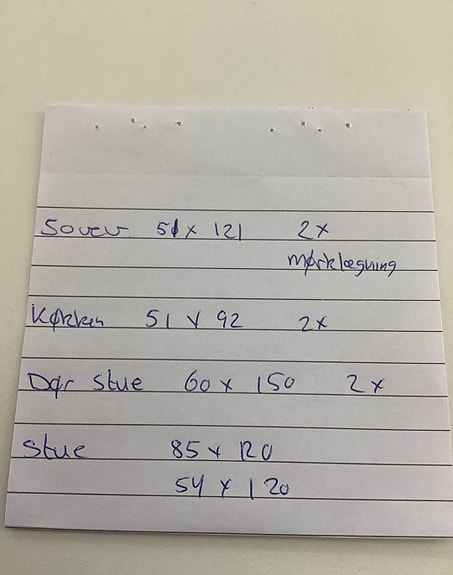 Sover 51 x 121 2x
mørklægning
Køkken 51 x 92 2x
Dør stue 60 x 150 2x
Stue 85 x 120
54 x 120